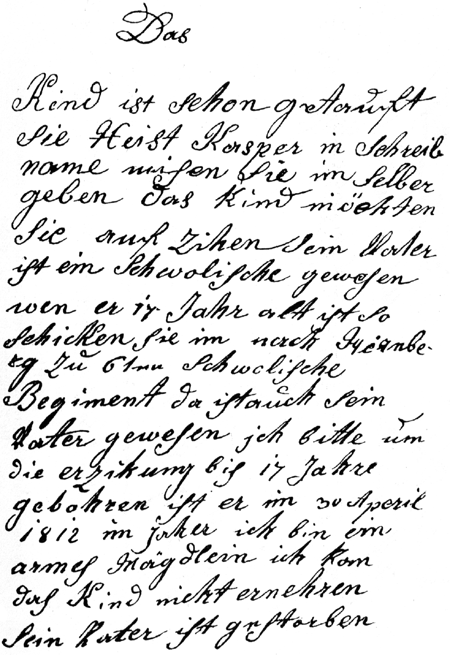 Das
Kind ist schon getauft
Sie Heist Kasper in Schreib
name misen Sie im selber
geben das Kind möchten
Sie auf Zihen Sein Vater
ist ein Schwolische gewesen
wen er 17 Jahr alt ist so
schicken sie im nach Nirnbe-
rg zu 6ten Schwolische
Begiment da ist auch sein
Vater gewesen ich bitte um
die erzikung bis 17 Jahre
gebohren ist er im 30 Aperil
1812 im Jaher ich bin ein
armes Mägdlein ich kan
das Kind nicht ernehren
Sein Vater ist gestorben